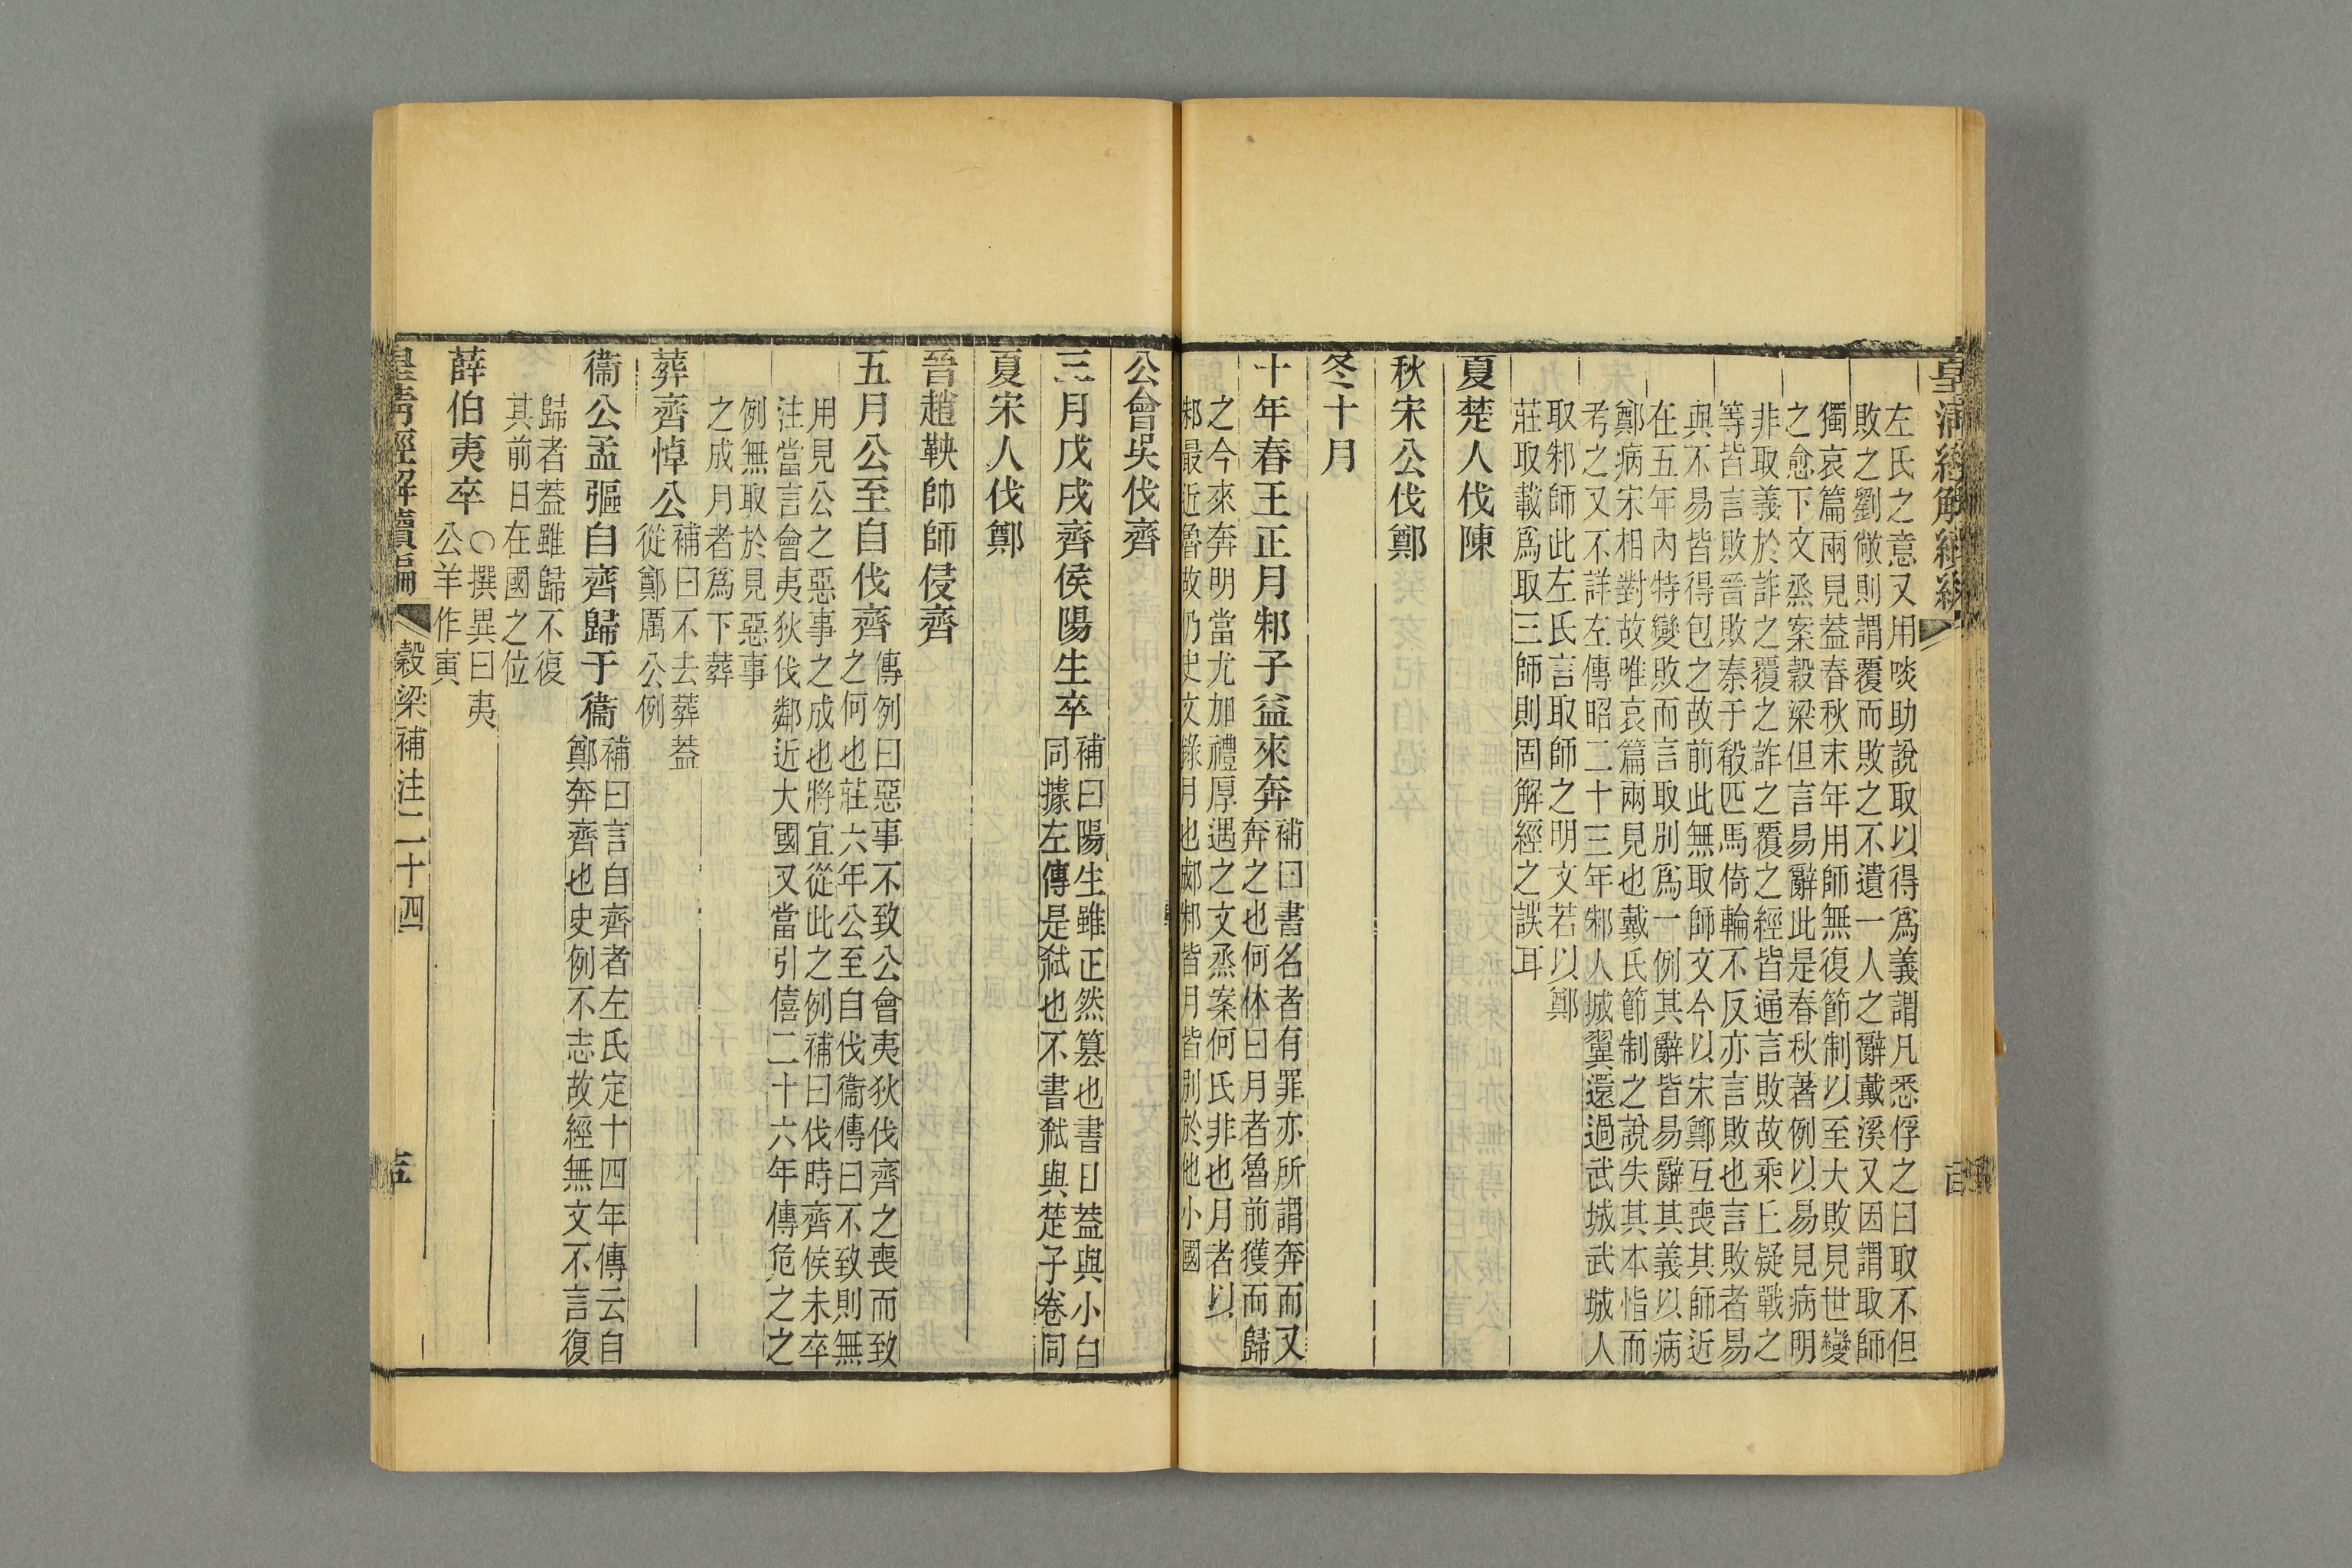 皇清經解續編
左氏之意又用啖助說取以得爲義謂凡悉俘之曰取不但
敗之劉敞則謂覆而敗之不遺一人之辭戴溪又因謂取師
獨哀篇兩見葢春秋末年用師無復節制以至大敗見世變
之愈下文烝案穀梁但言易辭此是春秋著例以易見病明
非取義於詐之覆之詐之覆之經皆通言敗故乘丘疑戰之
等皆言敗晉敗秦于殽匹馬倚輪不反亦言敗也言敗者易
與不易皆得包之故前此無取師文今以宋鄭互喪其師近
在五年內特變敗而言取別爲一例其辭皆易辭其義以病
鄭病宋相對故唯哀篇兩見也戴氏節制之說失其本恉而
考之又不詳左傳昭二十三年邾人城翼還過武城武城人
取邾師此左氏言取師之明文若以鄭
莊取載爲取三師則固解經之誤耳
夏楚人伐陳
秋宋公伐鄭
冬十月
十年春王正月邾子益來奔
補曰書名者有罪亦所謂奔而又
奔之也何休曰月者魯前獲而歸
之今來奔明當尤加禮厚遇之文烝案何氏非也月者以
邾最近魯故仍史文錄月也郕邾皆月皆別於他小國
公會吳伐齊
三月戊戌齊侯陽生卒
補曰陽生雖正然篡也書日葢與小白
同據左傳是弒也不書弒與楚子卷同
夏宋人伐鄭
晉趙鞅帥師侵齊
五月公至自伐齊
傳例曰惡事不致公會夷狄伐齊之喪而致
之何也莊六年公至自伐衞傳曰不致則無
用見公之惡事之成也將宜從此之例補曰伐時齊侯未卒
注當言會夷狄伐鄰近大國又當引僖二十六年傳危之之
例無取於見惡事
之成月者爲下葬
葬齊悼公
補曰不去葬葢
從鄭厲公例
衞公孟彄自齊歸于衞
補曰言自齊者左氏定十四年傳云自
鄭奔齊也史例不志故經無文不言復
歸者葢雖歸不復
其前日在國之位
薛伯夷卒
○撰異曰夷
公羊作寅
皇清經解續編
穀梁補注二十四